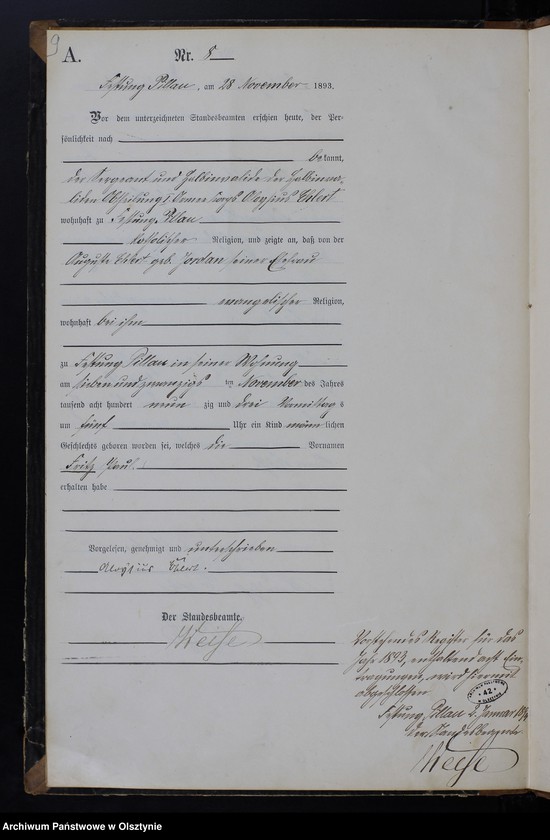 9
A.
Nr. 8
Festung Pillau, am 28 November 1893.
Vor dem unterzeichneten Standesbeamten erschien heute, der Per-
sönlichkeit nach
bekannt,
der Sergeant und Halbinvalide der Halbinva-
liden Abtheilung I Armee Corps Aloysius
wohnhaft zu Festung Pillau
katholischer Religion, und zeigte an, daß von der
Auguste geb. Jordan seiner Ehefrau
evangelischer Religion,
wohnhaft bei ihm
zu Festung Pillau in seiner Wohnung
am sieben und zwanzigsten November des Jahres
tausend acht hundert neun zig und drei Vormittags
um fünf Uhr ein Kind männlichen
Geschlechts geboren worden sei, welches die Vornamen
Fritz Paul
erhalten habe
Vorgelesen, genehmigt und unterschrieben
Aloysius
Der Standesbeamte.
Weese
Vorstehendes Register für das
Jahr 1893, enthaltend acht Ein-
tragungen, wird hiermit
abgeschlossen
Festung Pillau 2. Januar
Der Standesbeamte
Weese
42
Archiwum Państwowe w Olsztynie